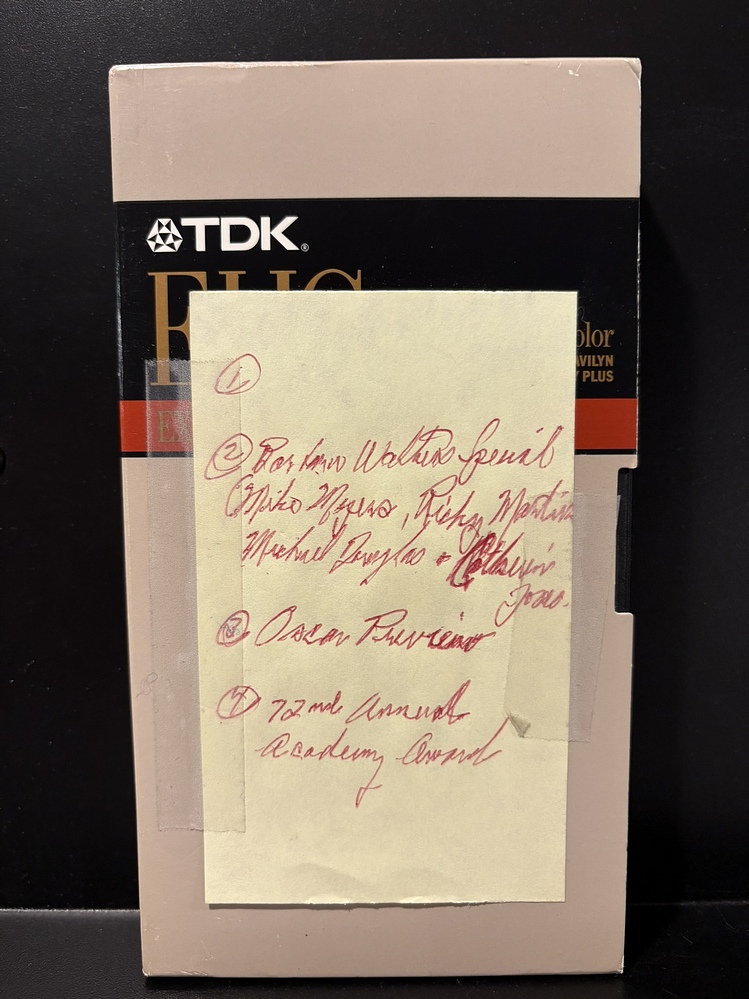 TDK®
EHG
olor
AVILYN
PLUS
E
①
② Barbara Walters Special
Mike Myers, Ricky Martin
Michael Douglas + Catherin
Jones.
③ Oscar Preview
④ 72nd Annual
Academy Award